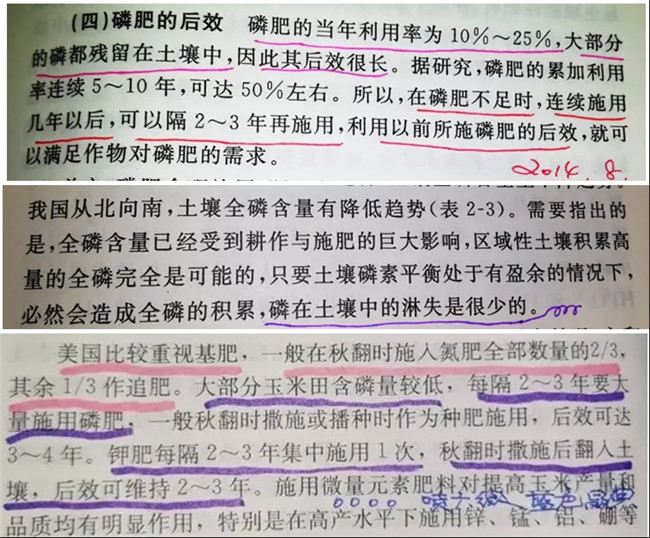 (四)磷肥的后效　磷肥的当年利用率为10%～25%,大部分
的磷都残留在土壤中,因此其后效很长。据研究,磷肥的累加利用
率连续5～10年,可达50%左右。所以,在磷肥不足时,连续施用
几年以后,可以隔2～3年再施用,利用以前所施磷肥的后效,就可
以满足作物对磷肥的需求。
2014.8.
我国从北向南,土壤全磷含量有降低趋势(表2-3)。需要指出的
是,全磷含量已经受到耕作与施肥的巨大影响,区域性土壤积累高
量的全磷完全是可能的,只要土壤磷素平衡处于有盈余的情况下,
必然会造成全磷的积累,磷在土壤中的淋失是很少的。
美国比较重视基肥，一般在秋翻时施入氮肥全部数量的2/3,
其余1/3作追肥。大部分玉米田含磷量较低，每隔2～3年要大
量施用磷肥，一般秋翻时撒施或播种时作为种肥施用，后效可达
3～4年。钾肥每隔2～3年集中施用1次，秋翻时撒施后翻入土
壤，后效可维持2～3年。施用微量元素肥料对提高玉米产量和
品质均有明显作用，特别是在高产水平下施用锌、锰、铝、硼等